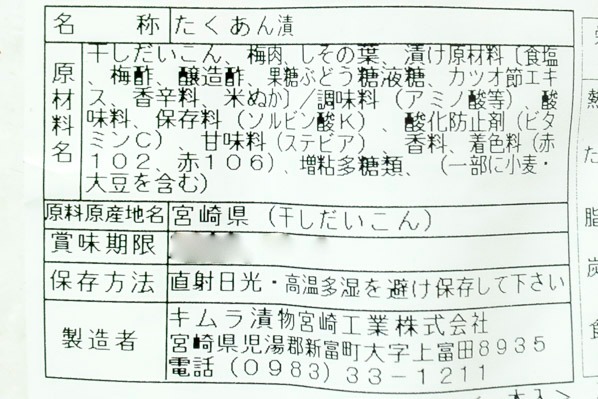 名称 たくあん漬
原材料名 干しだいこん、梅肉、しその葉、漬け原材料〔食塩
、梅酢、醸造酢、果糖ぶどう糖液糖、カツオ節エキ
ス、香辛料、米ぬか〕/調味料(アミノ酸等)、酸
味料、保存料(ソルビン酸K)、酸化防止剤(ビタ
ミンC)、甘味料(ステビア)、香料、着色料(赤
102、赤106)、増粘多糖類、(一部に小麦・
大豆を含む)
原料原産地名 宮崎県(干しだいこん)
賞味期限
保存方法 直射日光・高温多湿を避け保存して下さい
製造者 キムラ漬物宮崎工業株式会社
宮崎県児湯郡新富町大字上富田8935
電話(0983)33-1211
熱
た
脂
炭
食